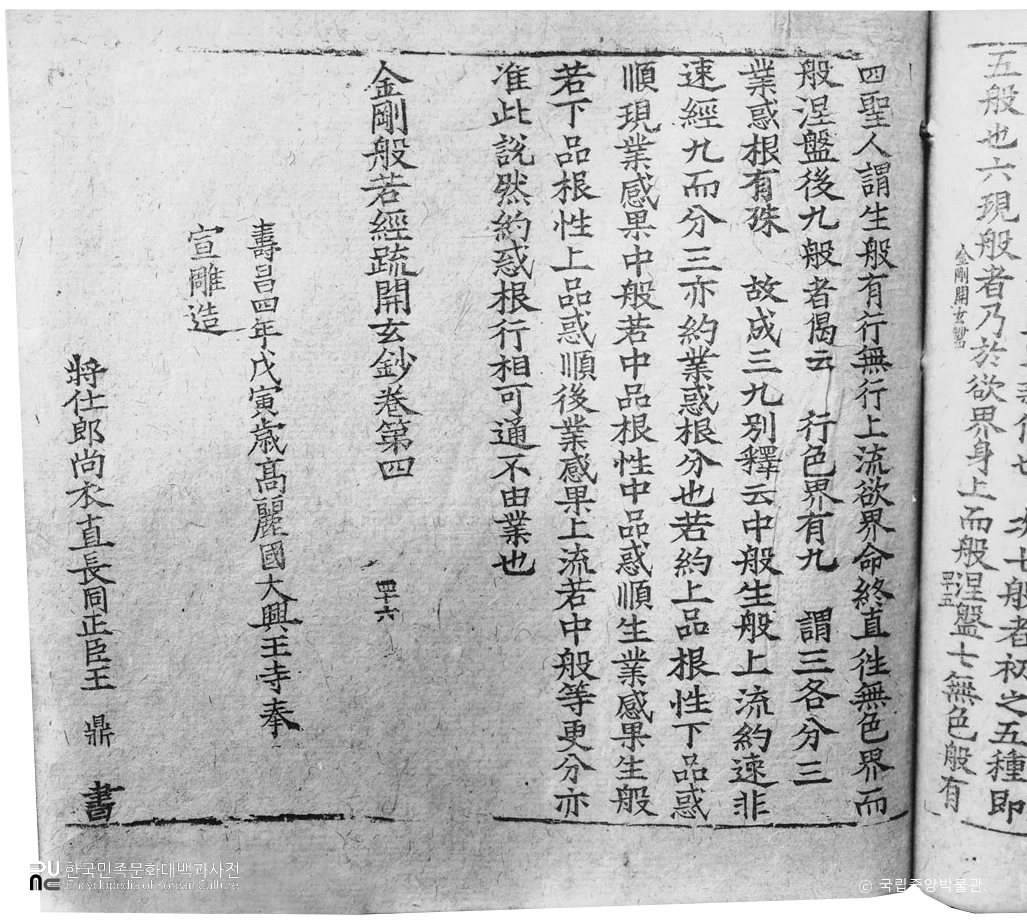 五般也六現般者乃於欲界身上而般涅盤七無色般有
金剛開玄鈔
四十五
四聖人謂生般有行無行上流欲界命終直徃無色界而
般涅盤後九般者偈云 行色界有九 謂三各分三
業惑根有殊 故成三九別釋云中般生般上流約速非
速經九而分三亦約業惑根分也若約上品根性下品惑
順現業感果中般若中品根性中品惑順生業感果生般
若下品根性上品惑順後業感果上流若中般等更分亦
准此說然約惑根行相可通不由業也
金剛般若經疏開玄鈔卷第四
四十六
壽昌四年戊寅歲高麗國大興王寺奉
宣雕造
將仕郎尚衣直長同正臣王 鼎 書
한국민족문화대백과사전
Encyclopedia of Korean Culture
© 국립중앙박물관